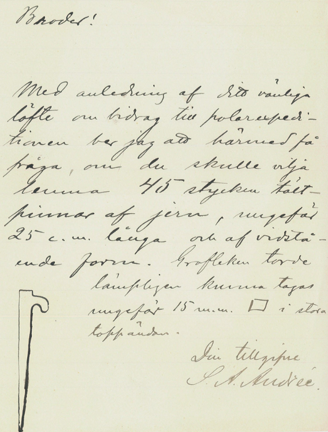 Broder!
Med anledning af ditt vänliga
löfte om bidrag till polarexpedi-
tionen ber jag att härmed få
fråga, om du skulle vilja
lemna 45 stycken tält-
pinnar af jern, ungefär
25 c.m. långa och af vidstå-
ende form. Grofleken torde
lämpligen kunna tagas
ungefär 15 m.m. i stora
toppändan.
Din tillgifne
S. A. Andrée.